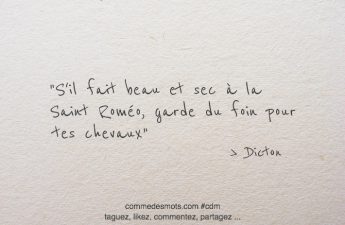 "S'il fait beau et sec à la
Saint Roméo, garde du foin pour
tes chevaux"
> Dicton
commedesmots.com #cdm
taguez, likez, commentez, partagez ...